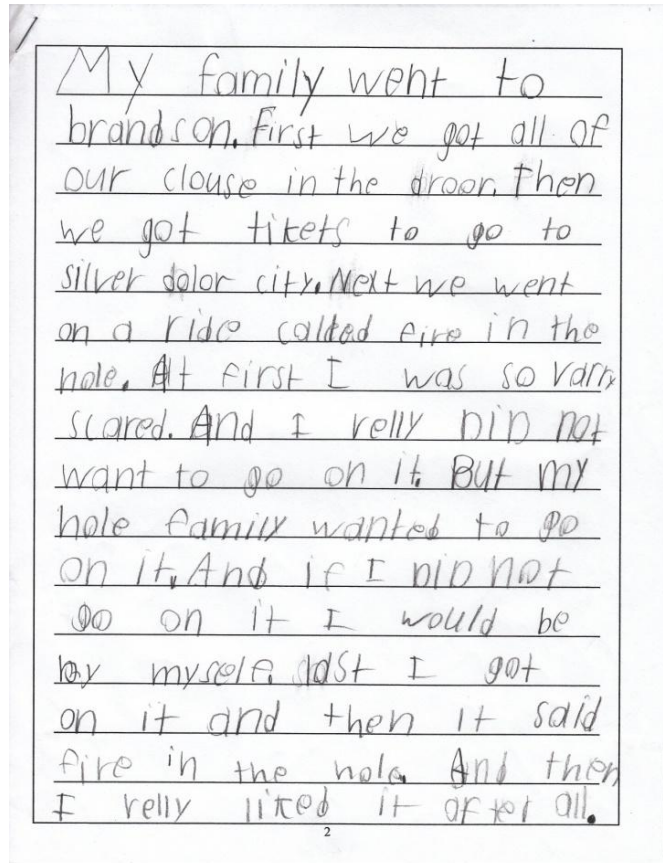 My family went to
brandson. First we got all of
our clouse in the droor. Then
we got tikets to go to
silver dolor city. Next we went
on a ride called fire in the
hole. At first I was so varry
scared. And I relly DiD not
want to go on it. But my
hole family wanted to go
on it. And if I DiD not
go on it I would be
by myself. last I got
on it and then it said
fire in the hole. And then
I relly liked it after all.
2